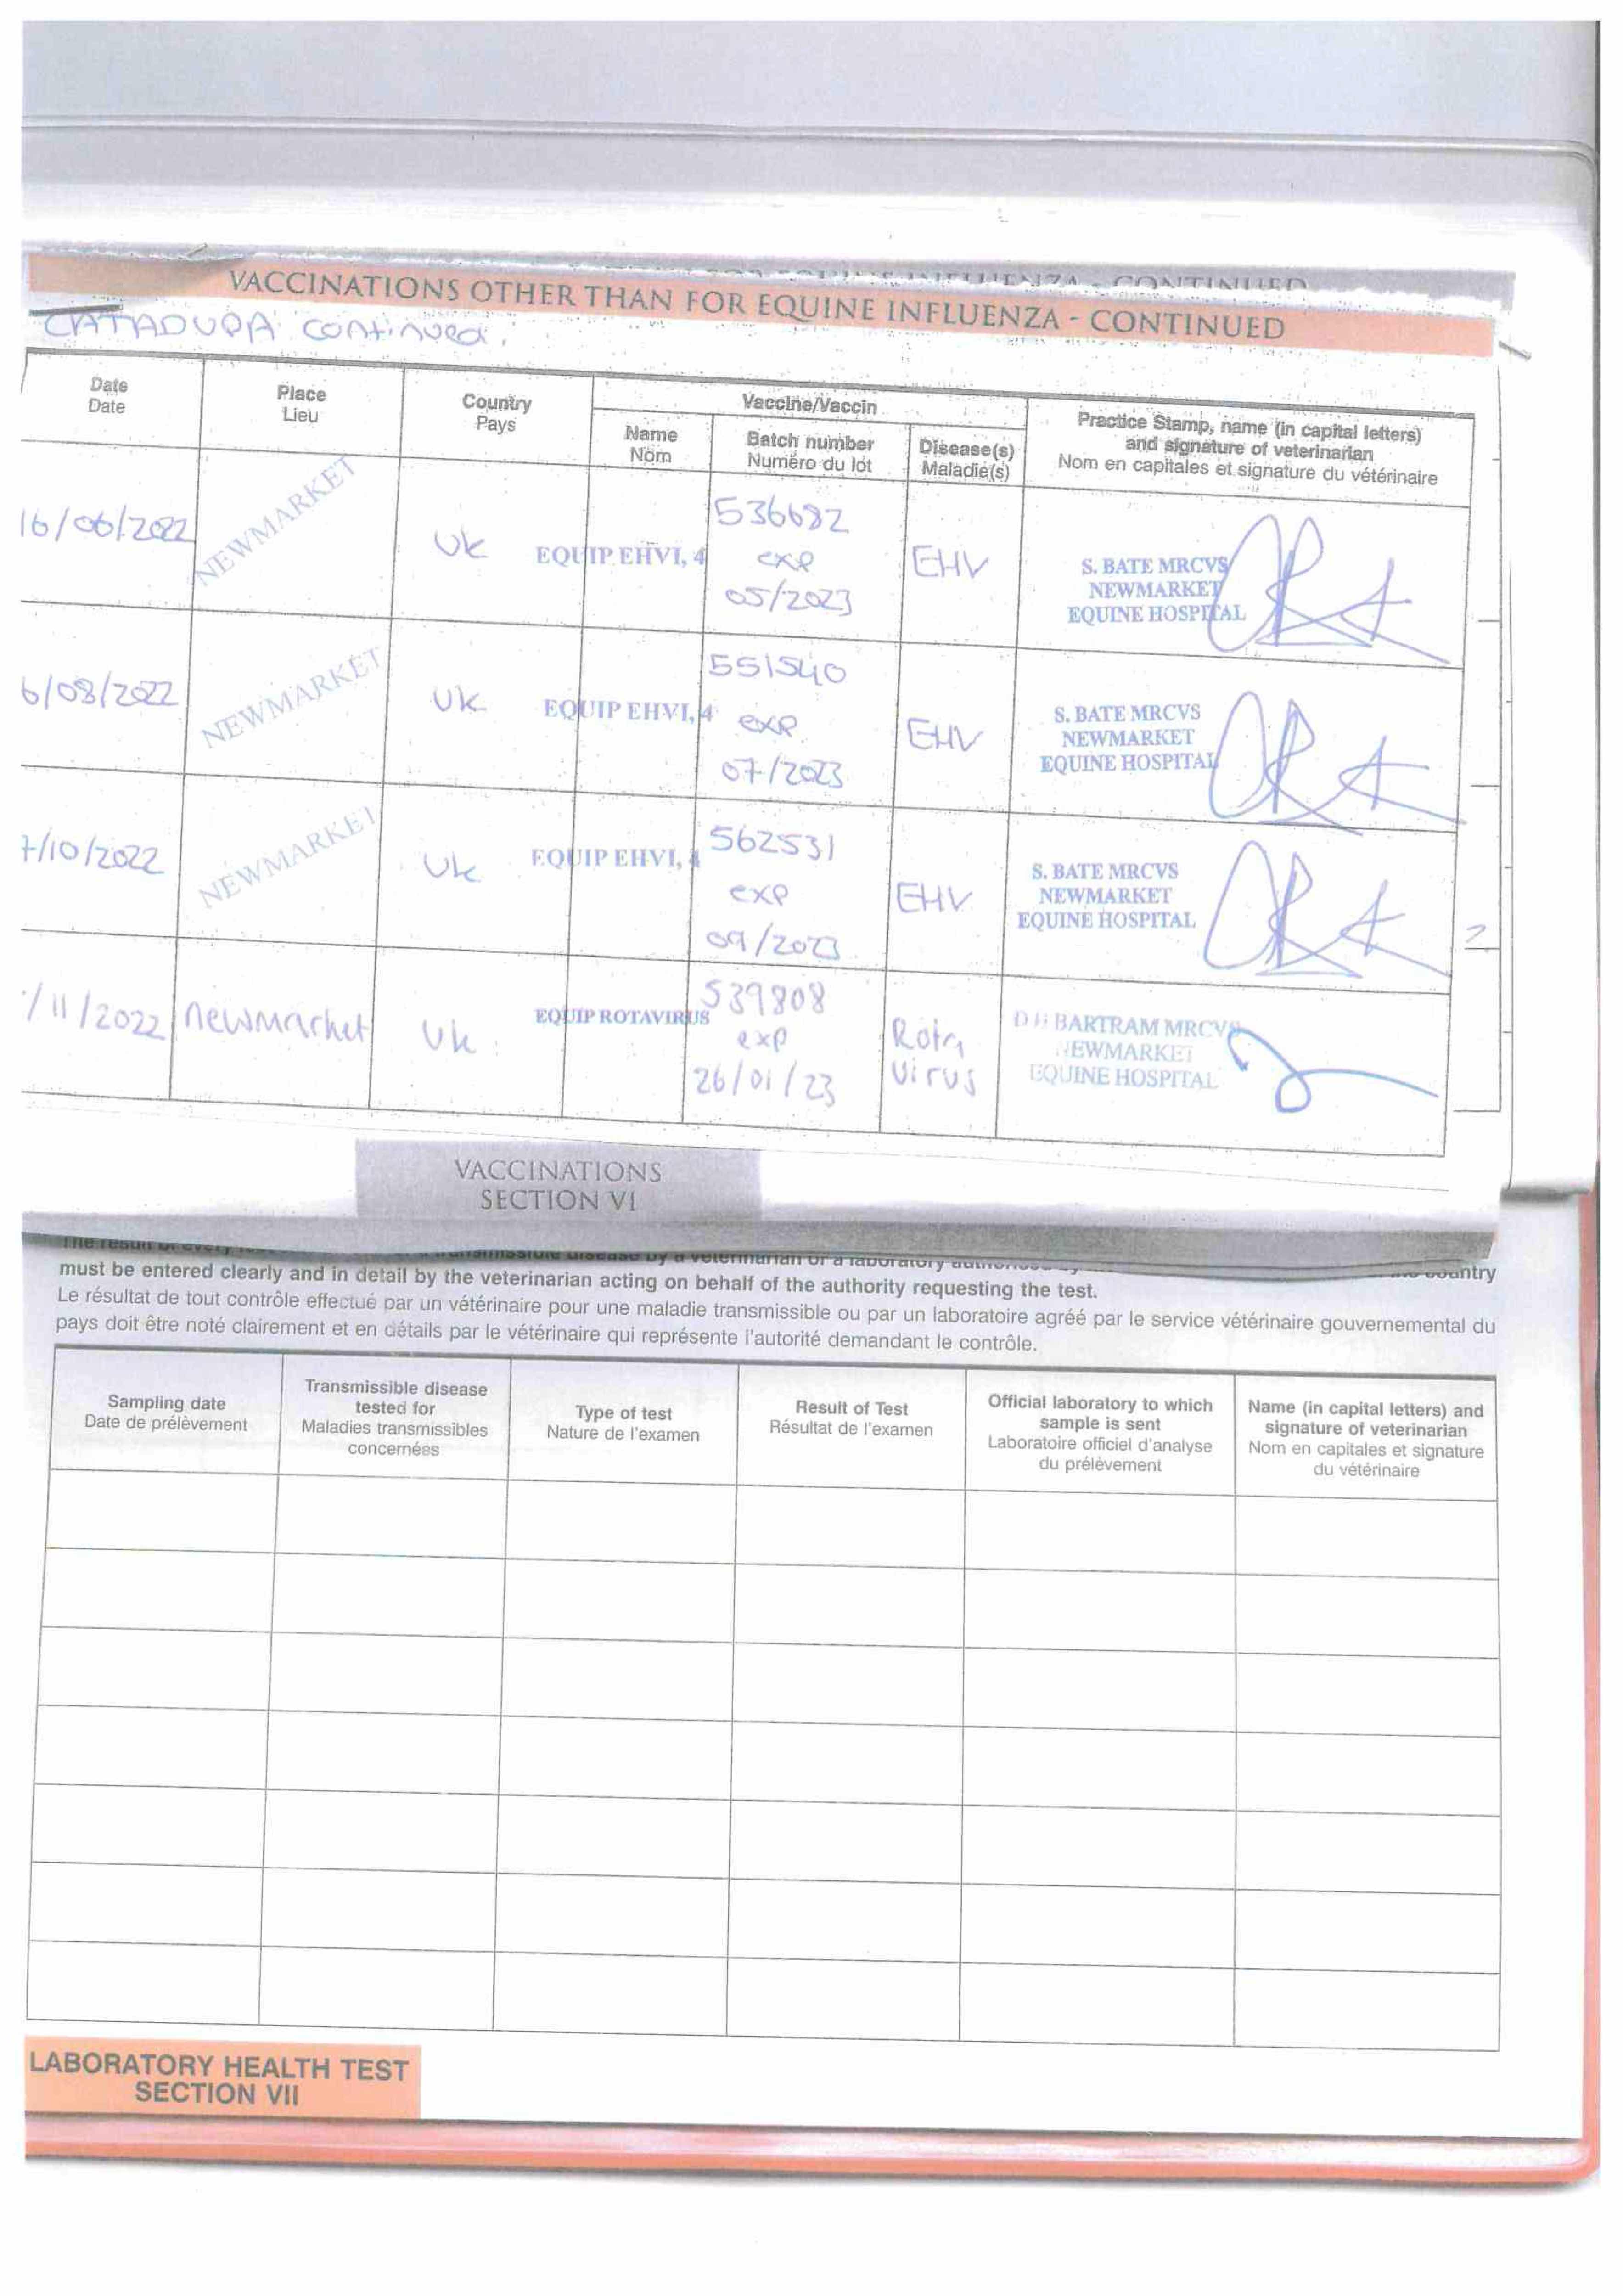 VACCINATIONS OTHER THAN FOR EQUINE INFLUENZA - CONTINUED
CATADUPA continued.
Date
Date
Place
Lieu
Country
Pays
Vaccine/Vaccin
Name
Nom
Batch number
Numéro du lot
Disease(s)
Maladie(s)
Practice Stamp, name (in capital letters)
and signature of veterinarian
Nom en capitales et signature du vétérinaire
16/06/2022
NEWMARKET
UK
EQUIP EHVI, 4
536682
exp
05/2023
EHV
S. BATE MRCVS
NEWMARKET
EQUINE HOSPITAL
6/08/2022
NEWMARKET
UK
EQUIP EHVI, 4
551540
exp
07/2023
EHV
S. BATE MRCVS
NEWMARKET
EQUINE HOSPITAL
7/10/2022
NEWMARKET
UK
EQUIP EHVI, 4
562531
exp
09/2023
EHV
S. BATE MRCVS
NEWMARKET
EQUINE HOSPITAL
/11/2022
newmarket
Uk
EQUIP ROTAVIRUS
539808
exp
26/01/23
Rota
Virus
BARTRAM MRCVS
NEWMARKET
EQUINE HOSPITAL
VACCINATIONS
SECTION VI
must be entered clearly and in detail by the veterinarian acting on behalf of the authority requesting the test.
Le résultat de tout contrôle effectué par un vétérinaire pour une maladie transmissible ou par un laboratoire agréé par le service vétérinaire gouvernemental du
pays doit être noté clairement et en détails par le vétérinaire qui représente l'autorité demandant le contrôle.
Sampling date
Date de prélèvement
Transmissible disease
tested for
Maladies transmissibles
concernées
Type of test
Nature de l'examen
Result of Test
Résultat de l'examen
Official laboratory to which
sample is sent
Laboratoire officiel d'analyse
du prélèvement
Name (in capital letters) and
signature of veterinarian
Nom en capitales et signature
du vétérinaire
LABORATORY HEALTH TEST
SECTION VII